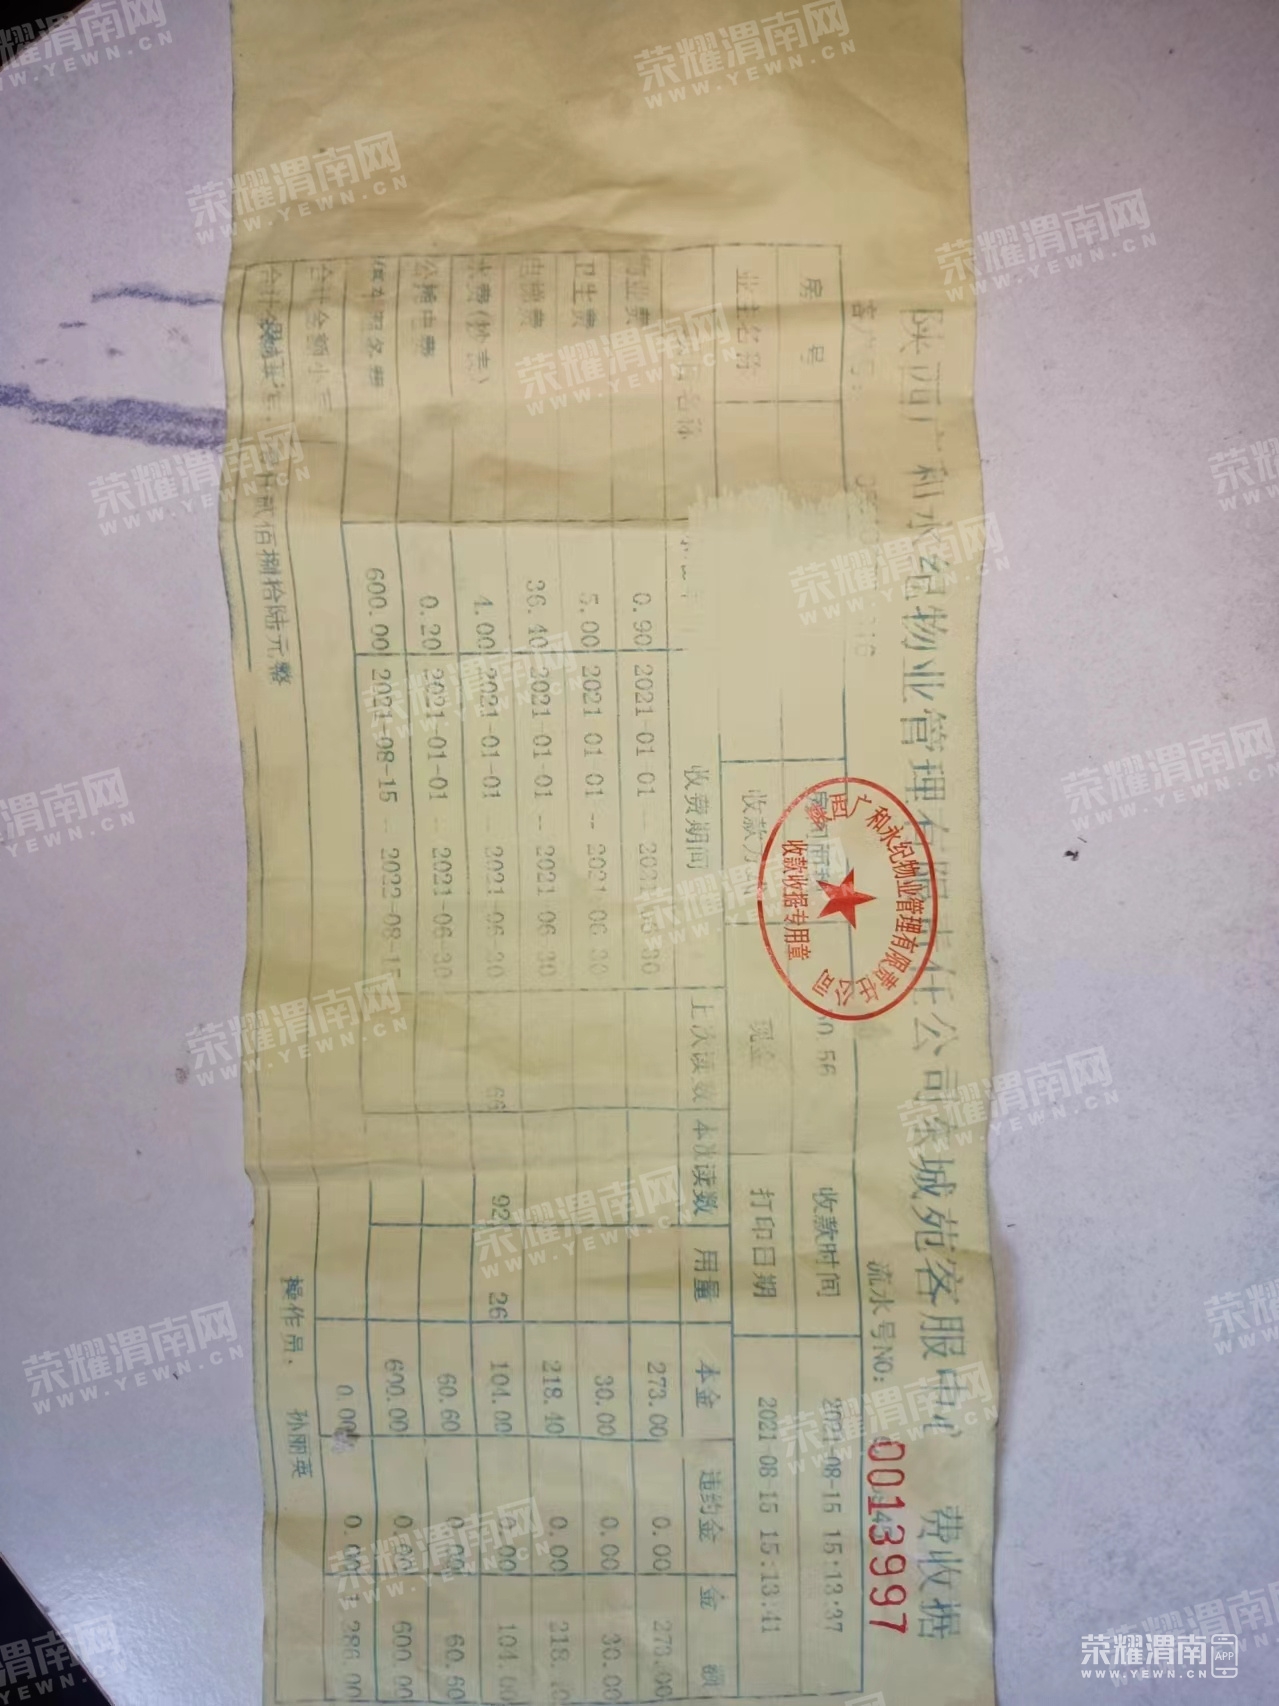 陕西广和永纪物业管理有限责任公司东城苑客服中心 费收据
客户号:
流水号NO:
0013997
房号
收款时间 2021-08-15 15:13:37
业主名称
收款方式 现金 打印日期 2021-08-15 15:13:41
收费期间 上次读数 本次读数 用量 本金 违约金 金额
物业费 0.90 2021-01-01 -- 2021-06-30 273.00 0.00 273.00
卫生费 5.00 2021-01-01 -- 2021-06-30 30.00 0.00 30.00
电梯费 36.40 2021-01-01 -- 2021-06-30 218.40 0.00
水费(抄表) 4.00 2021-01-01 -- 2021-06-30 66 92 26 104.00 0.00 104.00
公摊电费 0.20 2021-01-01 -- 2021-06-30 60.60 0.00 60.60
600.00 2021-08-15 -- 2022-08-15 600.00 0.00 600.00
合计金额小写 0.00 0.00 1,286.00
贰佰捌拾陆元整
操作员: 孙丽英
广和永纪物业管理有限责任公司
收款收据专用章
荣耀渭南网
WWW.YEWN.CN
荣耀渭南 APP
WWW.YEWN.CN